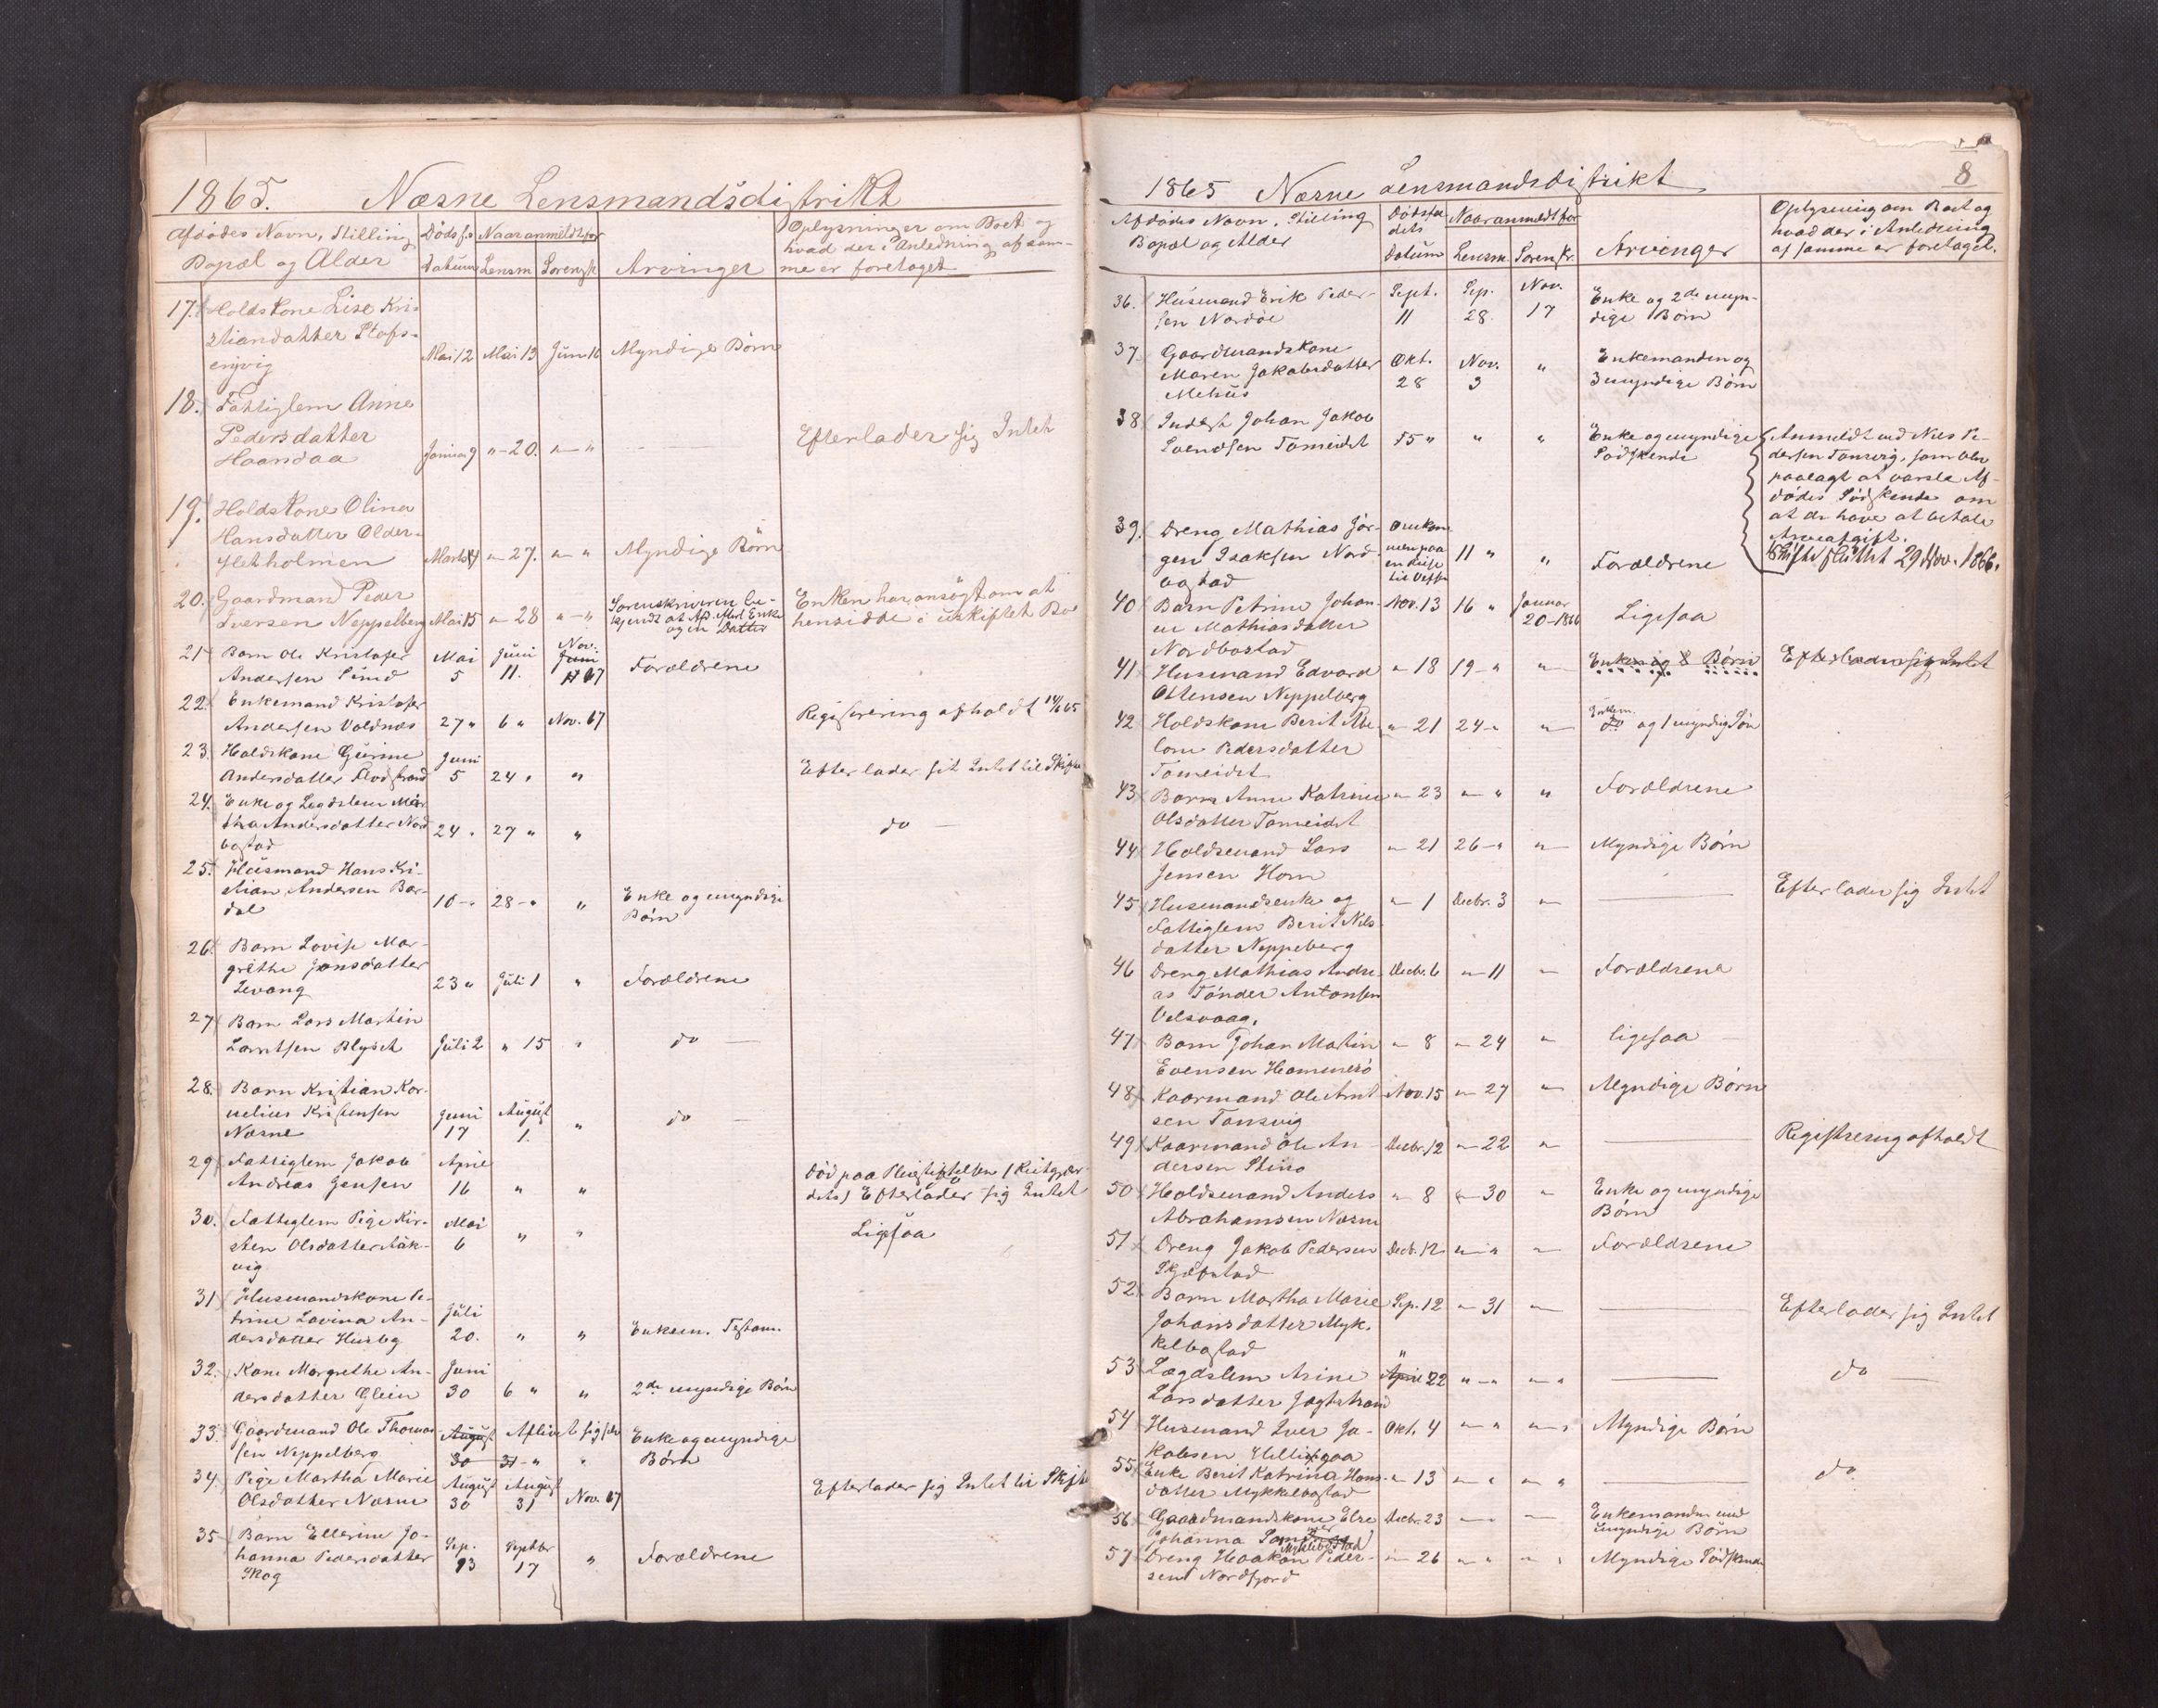 1865. Næsne Lensmandsdistrikt
Afdødes Navn, Stilling
Bopæl og Alder
Dødsf.s
Datum
Naar anmeldt for
Lensm.
Sorenskr
Arvinger
Oplysninger om Boet og
hvad der i Anledning af sam-
me er foretaget
17. Holdskone Lise Kri-
stiandatter
Mai 12 Mai 13 Juni 16 Myndige Børn
18. Fattiglem Anne
Pedersdatter
Haandaa Januar 9 " 20. " " Efterlader sig Intet
19. Holdskone Olina
Hansdatter Alder-
Marts " 27. " " Myndige Børn
20. Gaardmand Peder
Iversen Neppelberg Mai 15 " 28 " "
Sorenskriveren be-
kjendt at Afd. Med Enke
og en Datter
Enken har ansøgt om at
hensidde i uskiftet Bo
21 Barn Ole Kristofer
Andersen Mai 5 Juni 11. Nov. 17 Forældrene
22. Enkemand Kristofer
Andersen Valdnæs 27 " 6 " Nov. 17 Registrering afholdt
23. Holdskone Gurine
Andersdatter Juni 5 24 " " Efterlader sit Intet til Skifte
24. Enke og Lægdslem Mar-
tha Andersdatter Nord-
bostad 24 " 27 " " do
25. Husmand Hans Kri-
stian Andersen Bar-
dal 10 " 28 " " Enke og umyndige
Børn
26. Barn Lovise Mar-
grethe Jonsdatter
Levang 23 " Juli 1 " Forældrene
27 Barn Lars Martin
Larntsen Juli 2 " 15 " do
28. Barn Kristian Kor-
nelius Kristensen
Næsne Juni 17 August 1. " do
29 Fattiglem Jakob
Andreas Jensen April 16 " "
Død paa Pleiestiftelsen (Reitgjær-
det) Efterlader sig Intet
30. Fattiglem Pige Kir-
sten Olsdatter
vig Mai 6 " " Ligesaa
31 Husmandskone Pe-
trine Lovina An-
dersdatter Husby Juli 20. " " Enkem. Testam.
32. Kone Margrethe An-
dersdatter Glein Juni 30 6 " " 2de umyndige Børn
33. Gaardmand Ole Thomas-
sen Neppelberg August 30 31 " " Aflivet sig selv Enke og umyndige
Børn
34. Pige Martha Marie
Olsdatter Næsne August 30 August 31 Nov. 17 Efterlader sig Intet til Skifte
35 Barn Ellerine Jo-
hanna Pedersdatter
Skog Sep. 13 Septbr 17 " Forældrene
8
1865 Næsne Lensmandsdistrikt
Afdødes Navn, Stilling
Bopæl og Alder
Dødsfal-
dets
Datum
Naar anmeldt for
Lensm. Sorenskr.
Arvinger
Oplysning om Boet og
hvad der i Anledning
af samme er foretaget.
36. Husmand Erik Peder-
sen Nordøe Sept. 11 Sep. 28. Nov. 17 Enke og 2de umyn-
dige Børn
37. Gaardmandskone
Maren Jakobsdatter
Mehus Okt. 28 Nov. 3 " Enkemanden og
3 umyndige Børn
38 Inderst Johan Jakob
Svendsen Tomeidet 15 " " " Enke og myndige
Sødskende
Anmeldt ved Nils Pe-
dersen Tonsvig, som blev
paalagt at varsle Af-
dødes Sødskende om
at de have at betale
Arveafgift.
Skifte sluttet 29 Nov. 1866.
39. Dreng Mathias Jør-
gen Isaksen Nord-
bostad Omkom-
men paa
en Reise
til 11 " " Forældrene
40 Barn Petrine Johan-
ne Mathiasdatter
Nordbostad Nov. 13 16 " Januar
20-1866 Ligesaa
41 Husmand Edvard
Ottensen Neppelberg " 18 19 " " Enke og 8 Børn Efterlader sig Intet
42 Holdskone Berit Abe-
lone Pedersdatter
Tomeidet " 21 24 " " Enkem.
do og 1 myndig Søn
43 Barn Anne Katrine
Olsdatter Tomeidet " 23 " " " Forældrene
44 Holdsmand Lars
Jensen Horn " 21 26 " " Myndige Børn
45 Husmandsenke og
Fattiglem Berit Nils-
datter Neppeberg " 1 Decbr. 3 " Efterlader sig Intet
46 Dreng Mathias Andre-
as Tønder Antonsen
Velsvaag. Decbr. 6 " 11 " Forældrene
47 Barn Johan Martin
Evensen Hammerø " 8 " 24 " ligesaa
48 Kaarmand Ole Arnt-
sen Tonsvig Nov. 15 " 27 " Myndige Børn
49 Kaarmand Ole An-
dersen Decbr. 12 " 22 " Registrering afholdt
50 Holdsmand Anders
Abrahamsen Næsne " 8 " 30 " Enke og myndige
Børn
51 Dreng Jakob Pedersen
Decbr. 12 " " " Forældrene
52. Barn Martha Marie
Johansdatter Myk-
kelbostad Sep. 12 " 31 " Efterlader sig Intet
53 Lægdslem Arine
Larsdatter April 22 " " " " do
54 Husmand Iver Ja-
kobsen Okt. 4 " " " " Myndige Børn
55 Enke Berit Katrina Hans-
datter Mykkelbostad " 13 " " " " do
56 Gaardmandskone Else
Johanna
Mykkelbostad Decbr. 23 " " Enkemanden med
umyndige Børn
57 Dreng Haakon Peder-
sen Nordfjord " 26 " " " " Myndige Sødskende